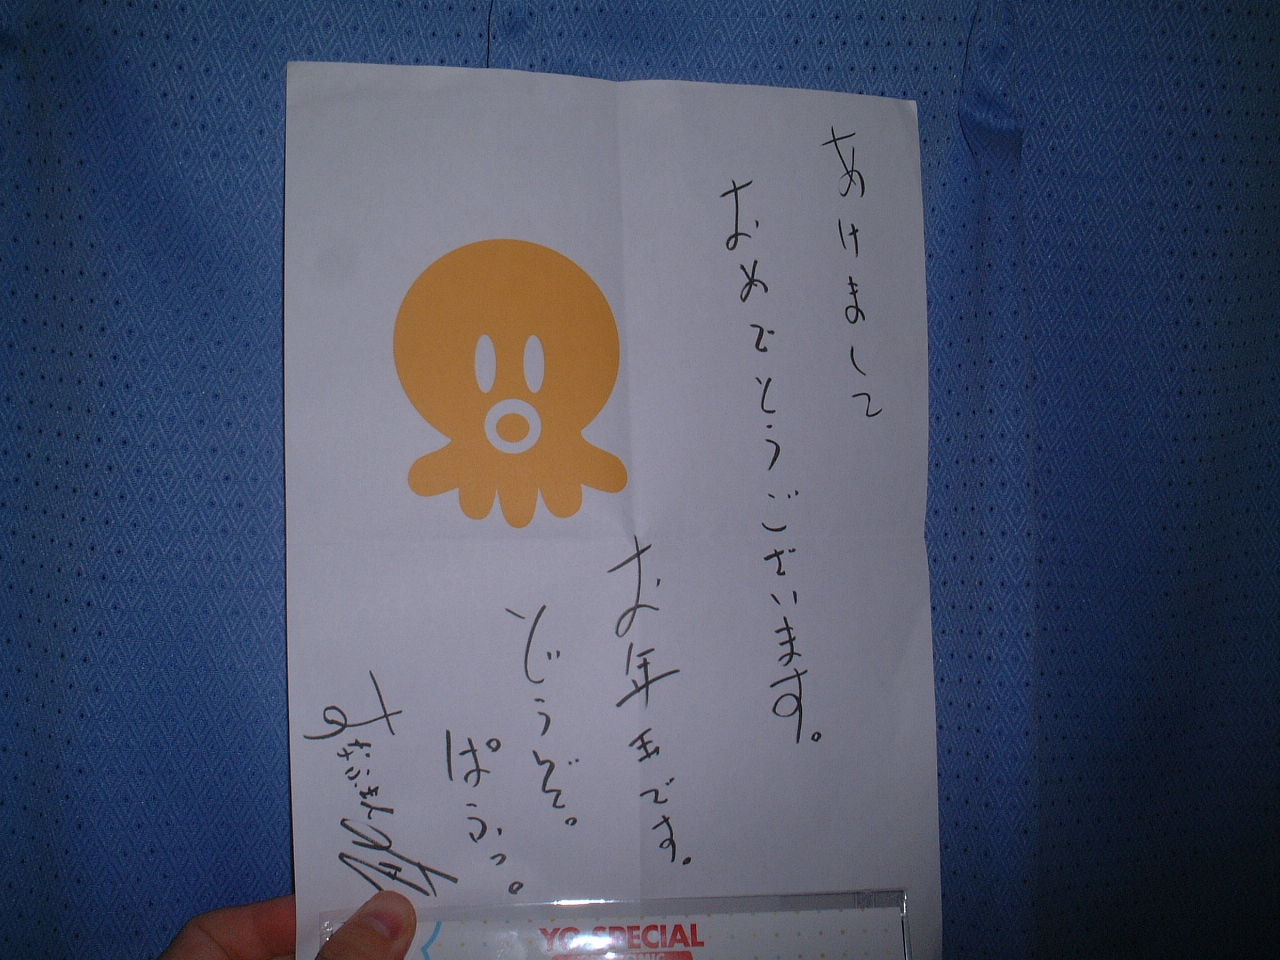 あけまして
おめでとうございます。
お年玉です。
どうぞ。
ぱふっ。
YG SPECIAL